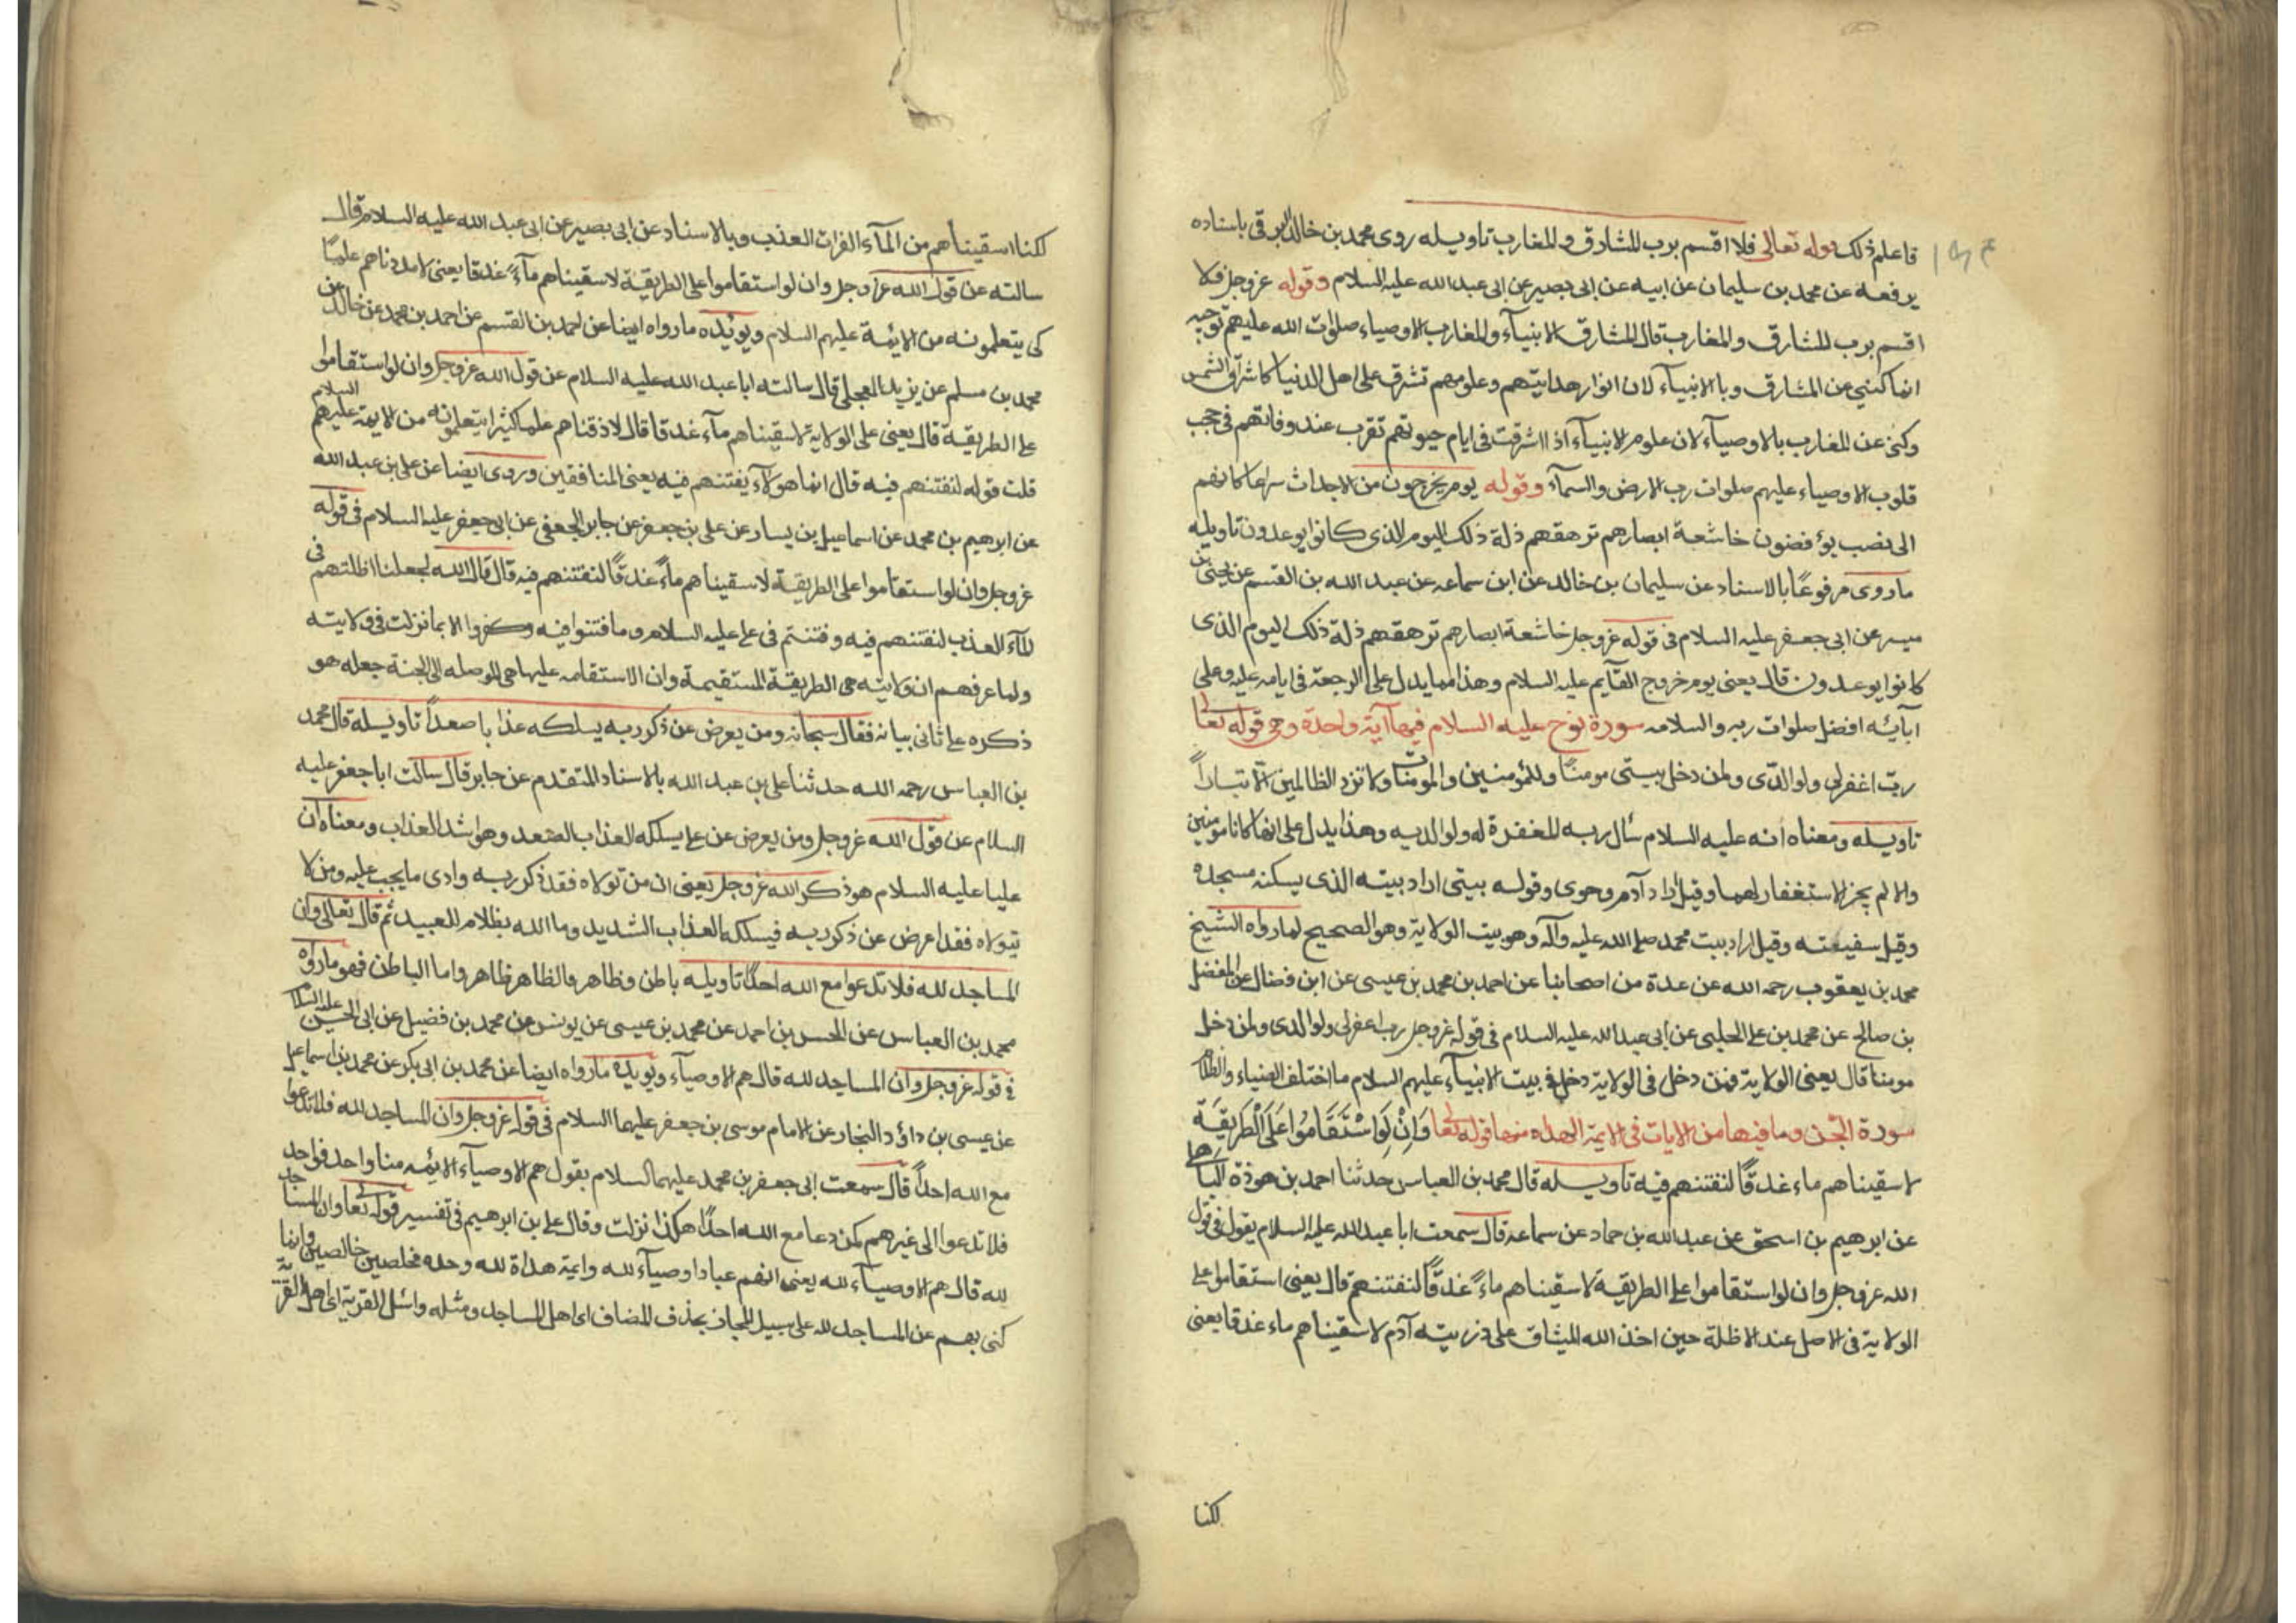 فاعلم ذلك قوله تعالى فلا اقسم برب المشارق والمغارب تاويله روى محمد بن خالد البرقى باسناده
يرفعه عن محمد بن سليمان عن ابيه عن ابى بصير عن ابى عبد الله عليه السلام وقوله عزوجل فلا
اقسم برب المشارق والمغارب قال المشارق الانبيآء والمغارب الاوصياء صلوات الله عليهم توجيه
انما كنى عن المشارق وبالانبيآء لان انوار هدايتهم وعلومهم تشرق على اهل الدنيا كاشراق الشمس
وكنى عن المغارب بالاوصيآء لان علوم الانبيآء اذا اشرقت فى ايام حيوتهم تقرب عند وفاتهم فى حجب
قلوب الاوصياء عليهم صلوات رب الارض والسمآء وقوله يوم يخرجون من الاجداث سراعا كانهم
الى نصب يوفضون خاشعة ابصارهم ترهقهم ذلة ذلك اليوم الذى كانوا يوعدون تاويله
ماروى مرفوعًا بالاسناد عن سليمان بن خالد عن ابن سماعه عن عبد الله بن القسم عن يحيى بن
ميسر عن ابى جعفر عليه السلام فى قوله عزوجل خاشعة ابصارهم ترهقهم ذلة ذلك اليوم الذى
كانوا يوعدون قال يعنى يوم خروج القآيم عليه السلام وهذا مما يدل على الرجعة فى ايامه عليه وعلى
آبآئه افضل صلوات ربه والسلامه سورة نوح عليه السلام فيها آية واحدة وهى قوله تعا
رب اغفرلى ولوالدى ولمن دخل بيتى مومنًا وللمؤمنين والمومنات ولا تزد الظالمين الا تبارًا
تاويله ومعناه انه عليه السلام سأل ربه المغفرة له ولوالديه وهذا يدل على انهما كانا مومنين
والا لم يجز الاستغفار لهما وقيل اراد آدم وحوى وقوله بيتى اراد بيته الذى يسكنه مسجده
وقيل سفينته وقيل اراد بيت محمد صلى الله عليه وآله وهو بيت الولاية وهو الصحيح لما رواه الشيخ
محمد بن يعقوب رحمه الله عن عدة من اصحابنا عن احمد بن محمد بن عيسى عن ابن فضال عن المفضل
بن صالح عن محمد بن على الحلبى عن ابى عبد الله عليه السلام فى قوله عزوجل رب اغفرلى ولوالدى ولمن دخل
مومنا قال يعنى الولاية فمن دخل فى الولاية دخل فى بيت الانبيآء عليهم السلام ما اختلف الضياء والظلام
سورة الجن وما فيها من الايات فى الايمة الهداه منها قوله تعا وَاِنْ لَواسْتَقَامُوا عَلَى الْطَرِيقَةِ
لاسقيناهم ماء غدقًا لنفتنهم فيه تاويله قال محمد بن العباس حدثنا احمد بن هوذة الباهلى
عن ابرهيم بن اسحق عن عبد الله بن حماد عن سماعه قال سمعت ابا عبد الله عليه السلام يقول فى قول
الله عزوجل وان لواستقاموا على الطريقة لاسقيناهم ماءً غدقًا لنفتنهم قال يعنى استقاموا على
الولاية فى الاصل عند الاظلة حين اخذ الله الميثاق على ذريته آدم لاسقيناهم ماء غدقا يعنى
لكنا
لكنا اسقيناهم من المآء الفرات العذب وبالاسناد عن ابى بصير عن ابى عبد الله عليه السلام قال
سالته عن قول الله عزوجل وان لواستقاموا على الطريقة لاسقيناهم مآءً غدقا يعنى لامددناهم علمًا
كى يتعلمونه من الايمة عليهم السلام ويويده ما رواه ايضا عن احمد بن القسم عن احمد بن محمد عن خالد عن
محمد بن مسلم عن يزيد العجلى قال سالته ابا عبد الله عليه السلام عن قول الله عزوجل وان لواستقاموا
على الطريقة قال يعنى على الولاية لاسقيناهم مآء غدقا قال لاذقناهم علما كثيرا يتعلمونه من الايمة عليهم السلام
قلت قوله لنفتنهم فيه قال انما هولآء يفتنهم فيه يعنى المنافقين وروى ايضا عن على بن عبد الله
عن ابرهيم بن محمد عن اسماعيل بن يسار عن على بن جعفر عن جابر الجعفى عن ابى جعفر عليه السلام فى قوله
عزوجل وان لواستقاموا على الطريقة لاسقيناهم ماءً غدقًا لنفتنهم فيه قال قال الله لجعلنا اظلتهم فى
المآء العذب لنفتنهم فيه وفتنتم فى على عليه السلام وما فتنوا فيه وكفروا الا بما نزلت فى ولايته
ولما عرفهم ان ولايته هى الطريقة المستقيمة وان الاستقامه عليها هى الموصله الى الجنة جعله هو
ذكره على ثانى بيانه فقال سبحانه ومن يعرض عن ذكر ربه يسلكه عذابا صعدًا تاويله قال محمد
بن العباس رحمه الله حدثنا على بن عبد الله بالاسناد المتقدم عن جابر قال سالت ابا جعفر عليه
السلام عن قول الله عزوجل ومن يعرض عن على يسلكه العذاب الصعد وهو اشد العذاب ومعناه ان
عليا عليه السلام هو ذكر الله عزوجل يعنى ان من تولاه فقد ذكر ربه وادى ما يجب عليه ومن لا
يتولاه فقد اعرض عن ذكر ربه فيسلكه العذاب الشديد وما الله بظلام للعبيد ثم قال تعالى وان
المساجد لله فلا تدعوا مع الله احدًا تاويله باطن وظاهر والظاهر ظاهر واما الباطن فهو مارواه
محمد بن العباس عن الحسن بن احمد عن محمد بن عيسى عن يونس عن محمد بن فضيل عن ابى الحسن عليه السلام
فى قوله عزوجل وان المساجد لله قال هم الاوصيآء ويويده مارواه ايضا عن محمد بن ابى بكر عن محمد بن اسماعيل
عن عيسى بن داؤد النجار عن الامام موسى بن جعفر عليهما السلام فى قوله عزوجل وان المساجد لله فلا تدعوا
مع الله احدًا قال سمعت ابى جعفر بن محمد عليهما السلام يقول هم الاوصيآء الايمه منا واحد فواحد
فلا تدعوا الى غيرهم كمن دعا مع الله احدًا هكذا نزلت وقال على بن ابرهيم فى تفسير قوله تعا وان المساجد
لله قال هم الاوصيآء لله يعنى انهم عبادا اوصيآء لله وايمة هداة لله وحده مخلصين خالصين وانما
كنى بهم عن المساجد لله على سبيل المجاز بحذف المضاف اى اهل المساجد ومثله واسئل القرية اى اهل القرية